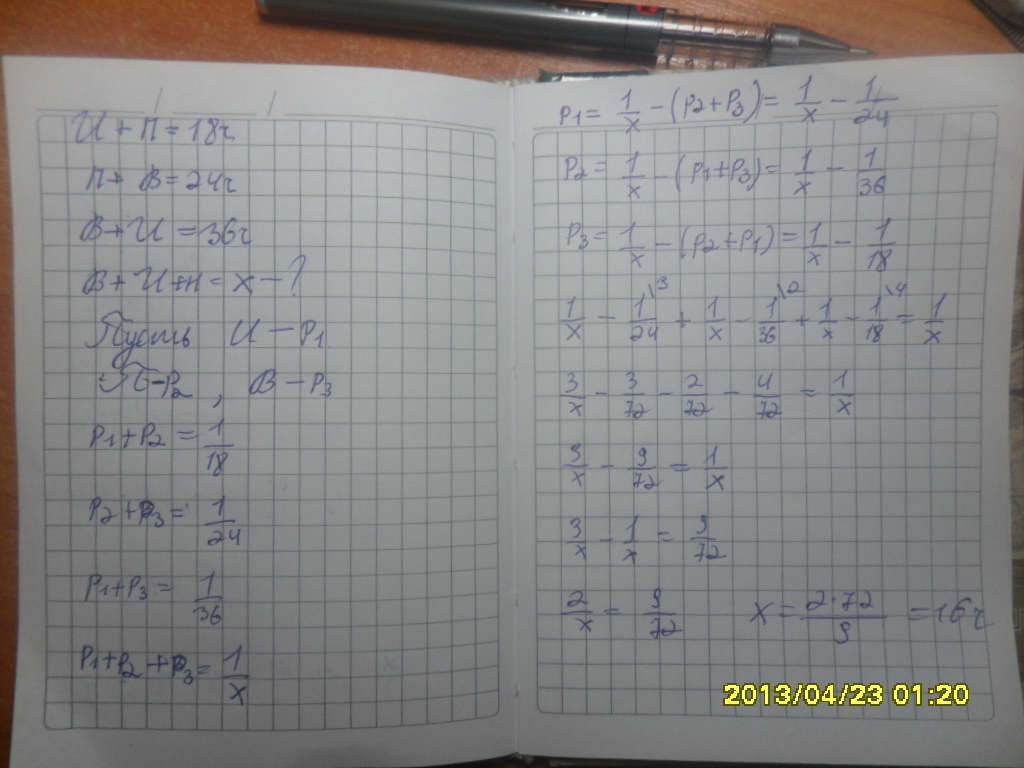 И + П = 18ч
П + В = 24ч
В + И = 36ч
В + И + П = x – ?
Пусть И – P1
П – P2 , В – P3
P1 + P2 = 1/18
P2 + P3 = 1/24
P1 + P3 = 1/36
P1 + P2 + P3 = 1/x
P1 = 1/x – (P2 + P3) = 1/x – 1/24
P2 = 1/x – (P1 + P3) = 1/x – 1/36
P3 = 1/x – (P2 + P1) = 1/x – 1/18
1/x – 1/24 \3 + 1/x – 1/36 \2 + 1/x – 1/18 \4 = 1/x
3/x – 3/72 – 2/72 – 4/72 = 1/x
3/x – 9/72 = 1/x
3/x – 1/x = 9/72
2/x = 9/72 x = 2·72/9 = 16ч
2013/04/23 01:20